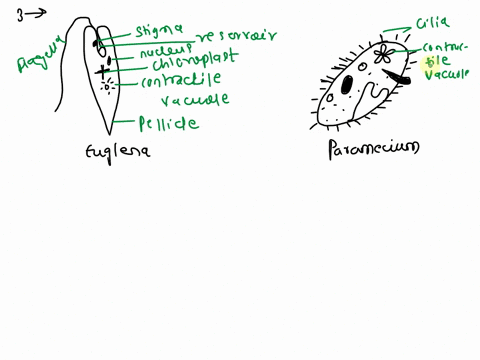 3→
Flagella
stigma
reservoir
nucleus
chloroplast
contractile
vacuole
pellicle
Euglena
cilia
contrac-
tile
vacuole
Paramecium